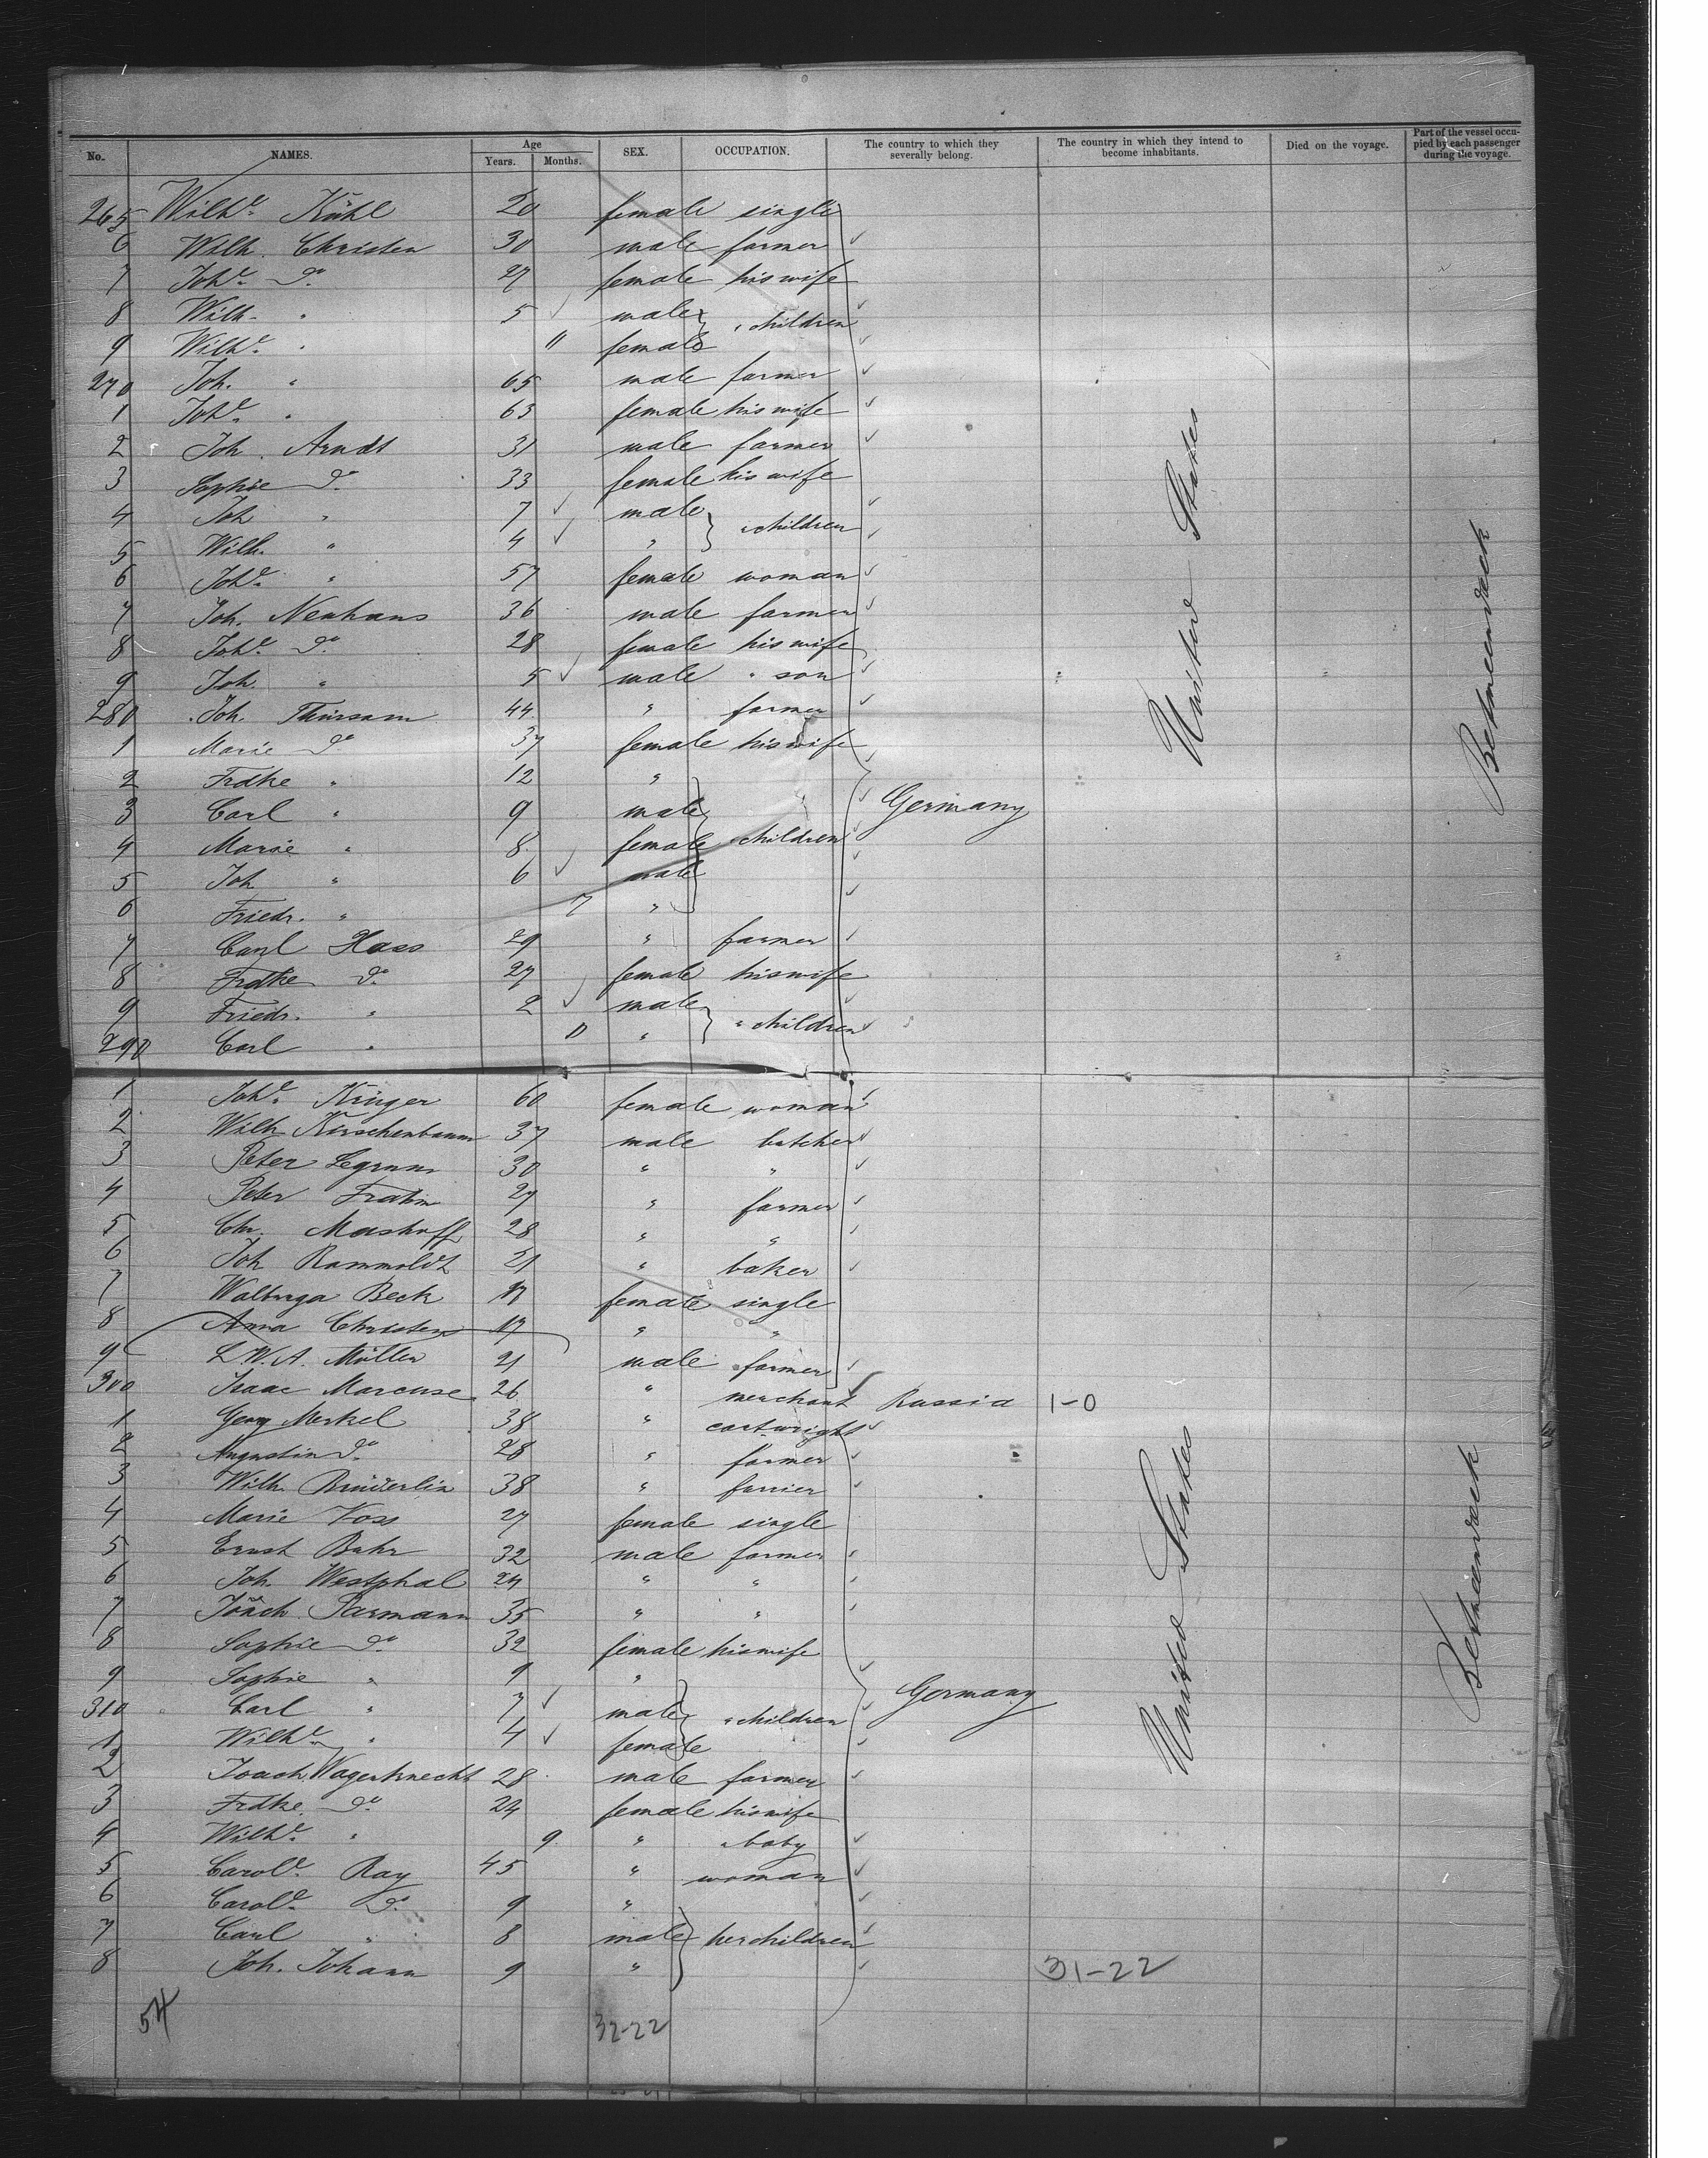 No. NAMES. Age Years. Months. SEX. OCCUPATION. The country to which they severally belong. The country in which they intend to become inhabitants. Died on the voyage. Part of the vessel occupied by each passenger during the voyage.
265 Wilhe. Kühl 20 female single
6 Wilh. Christen 30 male farmer
7 Johe. do. 27 female his wife
8 Wilh. " 5 male } " children
9 Wilhe. " 11 female
270 Joh. " 65 male farmer
1 Johe. " 63 female his wife
2 Joh. Arndt 31 male farmer
3 Sophie do. 33 female his wife
4 Joh " 7 male } " children
5 Wilh. " 4 "
6 Johe. " 57 female woman
7 Joh. Neuhaus 36 male farmer
8 Johe. do. 28 female his wife
9 Joh. " 5 male " son
280 Joh. Thürsam 44 " farmer
1 Marie do. 37 female his wife
2 Frdke " 12 "
3 Carl " 9 male Germany
4 Marie " 8 female " children
5 Joh " 6 male
6 Friedr. " 7 "
7 Carl Hass 29 " farmer
8 Frdke do. 27 female his wife
9 Friedr. " 2 male } " children
290 Carl " "
United States
Between deck
1 Johe. Krüger 60 female woman
2 Wilh. Kirschenbaum 37 male butcher
3 Peter Legrum 30 " "
4 Peter Frahm 27 " farmer
5 Chr. Mashoff 28 " "
6 Joh Rammoldt 21 " baker
7 Walburga Beck 17 female single
8 Anna Christen 17 " "
9 L. W. A. Müller 21 male farmer
300 Isaac Marcuse 26 " merchant Russia 1-0
1 Georg Merkel 38 " cartwright
2 Augustin do. 28 " farmer
3 Wilh. Brüderlin 38 " farrier
4 Marie Voss 27 female single
5 Ernst Buhr 32 male farmer
6 Joh. Westphal 24 " "
7 Joach. Sarmann 35 " "
8 Sophie do. 32 female his wife
9 Sophie " 9 "
310 Carl " 7 male " children Germany
1 Wilhe. " 4 female
2 Joach. Wagerknecht 28 male farmer
3 Frdke. do. 24 female his wife
4 Wilhe. " 9 " " baby
5 Carole. Ray 45 " woman
6 Carole. do. 9 "
7 Carl " 8 male } her children
8 Joh. Johann 9 " 31-22
United States
Between deck
54 32-22